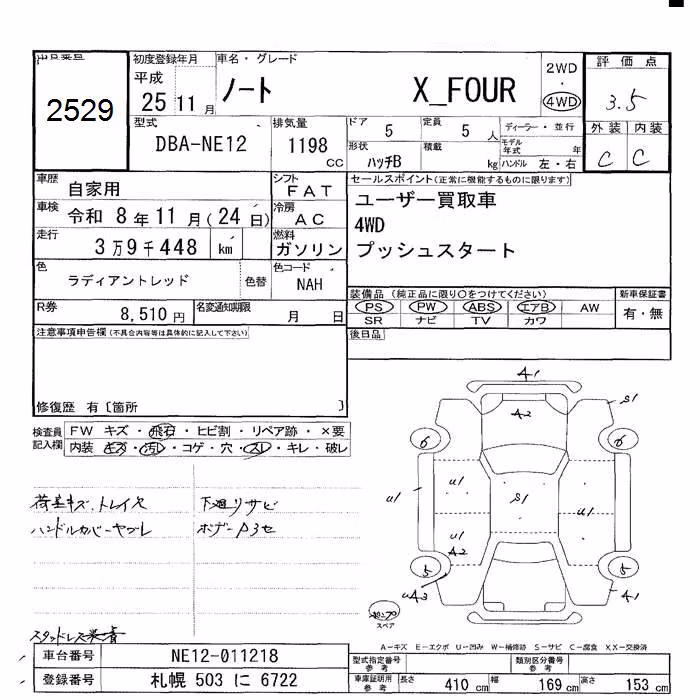 出品番号 初度登録年月 車名・グレード 2WD 評価点
2529 平成 25 11月 ノート X_FOUR 4WD 3.5
型式 排気量 ドア 5 定員 5 人 ディーラー・並行 外装 内装
DBA-NE12 1198 CC 形状 ハッチB 積載 kg モデル年式 年 ハンドル 左・右 C C
車歴 自家用 シフト FAT セールスポイント(正常に機能するものに限ります)
車検 令和 8年 11月(24日) 冷房 AC ユーザー買取車
走行 3万9千448 km 燃料 ガソリン 4WD
プッシュスタート
色 ラディアントレッド 色替 色コード NAH
装備品(純正品に限り○をつけてください) 新車保証書
R券 8,510円 名変通知期限 月 日 PS PW ABS エアB AW 有・無
SR ナビ TV カワ
注意事項申告欄(不具合内容等は具体的に記入して下さい) 後日品
修復歴 有〔箇所 〕
検査員記入欄 FW キズ・飛石・ヒビ割・リペア跡・×要
内装 キズ・汚レ・コゲ・穴・スレ・キレ・破レ
A1
A2
S1
6 6
u1 u1 S1 u1
u1
A2
5 5
uA3 A1
下廻リサビ
ハンドルカバーヤブレ
スペア
A－キズ E－エクボ U－凹み W－補修跡 S－サビ C－腐食 XX－交換済
車台番号 NE12-011218 型式指定番号 参考 類別区分番号 参考
登録番号 札幌 503 に 6722 車庫証明用 参考 長さ 410 cm 幅 169 cm 高さ 153 cm